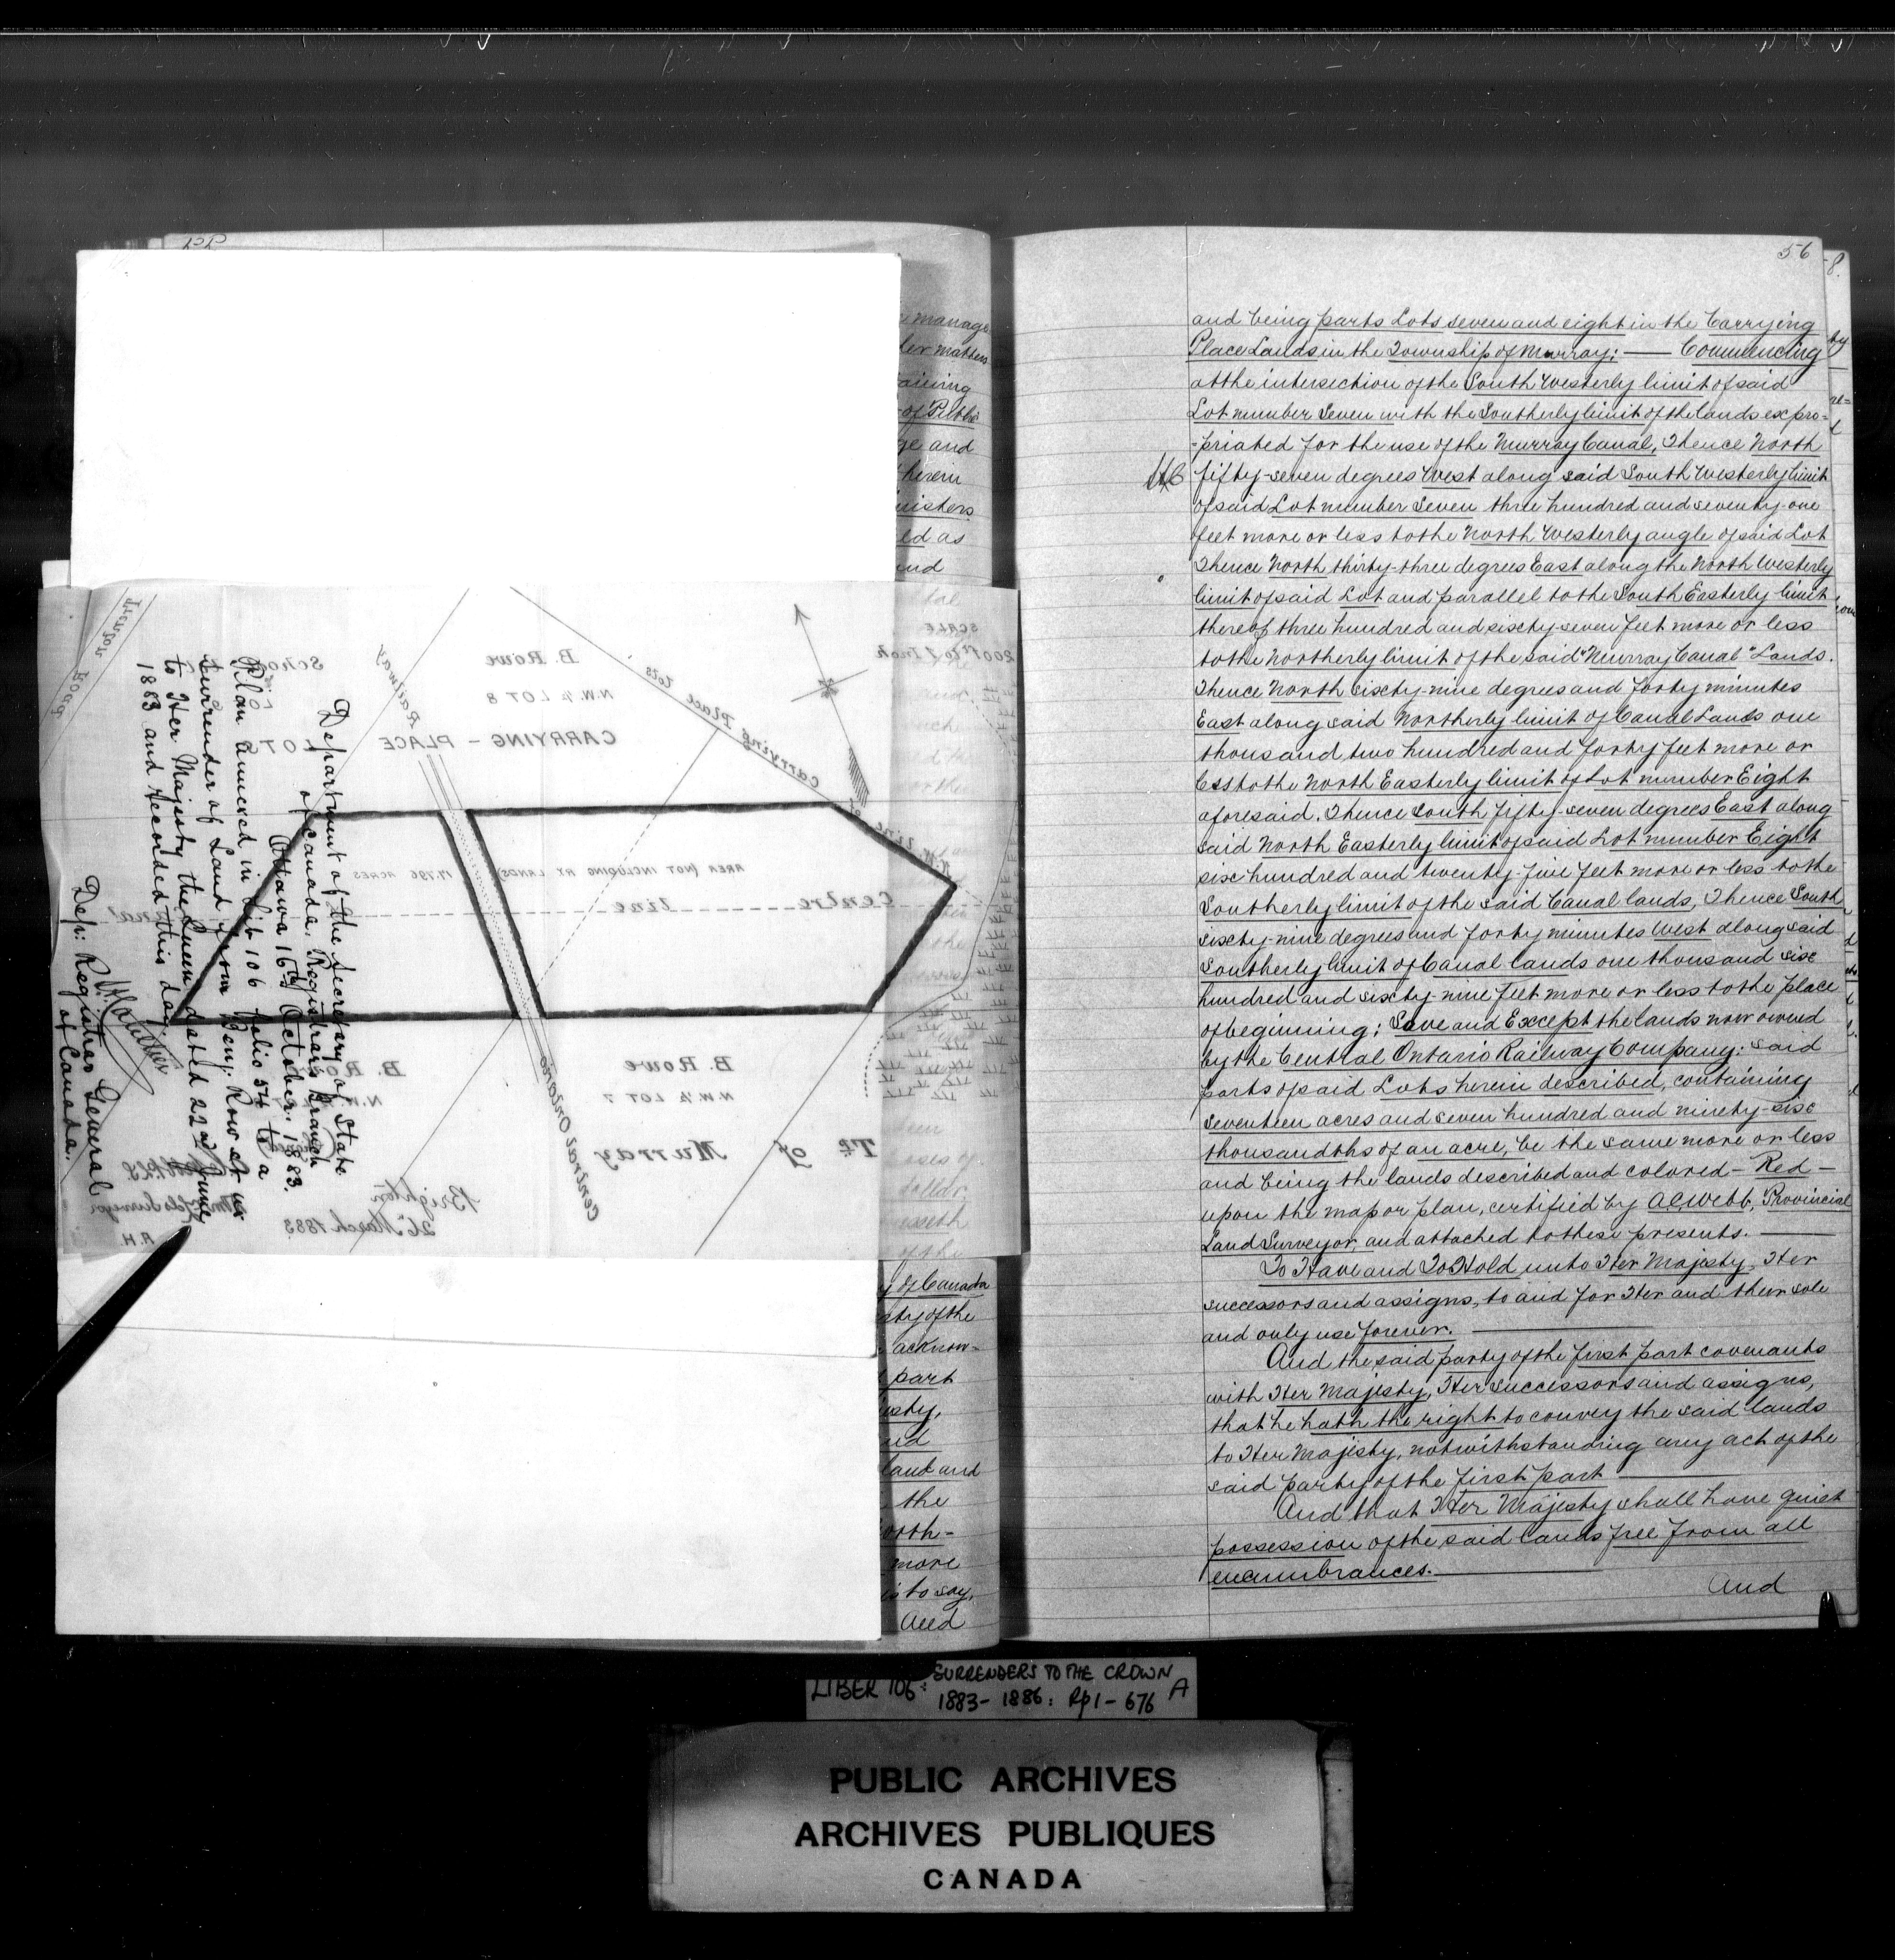 56
and being parts Lots seven and eight in the Carrying
Place Lands in the Township of Murray: — Commencing
at the intersection of the South Westerly limit of said
Lot number Seven with the Southerly limit of the lands expro=
=priated for the use of the Murray Canal, Thence North
fifty-seven degrees West along said South Westerly limit
of said Lot number Seven three hundred and seventy-one
feet more or less to the North Westerly angle of said Lot
Thence North thirty-three degrees East along the North Westerly
limit of said Lot and parallel to the South Easterly limit
thereof three hundred and sixty-seven feet more or less
to the Northerly limit of the said "Murray Canal" Lands.
Thence North sixty-nine degrees and forty minutes
East along said Northerly limit of Canal Lands one
thousand two hundred and forty feet more or
less to the North Easterly limit of Lot number Eight
aforesaid. Thence South fifty-seven degrees East along
said North Easterly limit of said Lot number Eight
six hundred and twenty-five feet more or less to the
Southerly limit of the said Canal lands, Thence South
sixty-nine degrees and forty minutes West along said
Southerly limit of Canal lands one thousand six
hundred and sixty-nine feet more or less to the place
of beginning; Save and Except the lands now owned
by the Central Ontario Railway Company: said
parts of said Lots herein described, containing
seventeen acres and seven hundred and ninety-six
thousandths of an acre, be the same more or less
and being the lands described and colored – Red –
upon the map or plan, certified by A.C. Webb, Provincial
Land Surveyor, and attached to these presents. —
To Have and To Hold unto Her Majesty, Her
successors and assigns, to and for Her and their sole
and only use forever. —
And the said party of the first part covenants
with Her Majesty, Her successors and assigns,
that he hath the right to convey the said lands
to Her Majesty, notwithstanding any act of the
said party of the first part —
And that Her Majesty shall have quiet
possession of the said lands free from all
encumbrances. —
And
Department of the Secretary of State
of Canada, Registrar's Branch
Ottawa 16th October: 1883.
Plan annexed in Lib 106 Folio 54 to a
Surrender of Land from Benj. Rowe et ux
to Her Majesty the Queen dated 22nd June
1883 and recorded this day.
Dep: Registrar General
of Canada.
SCALE
200 Ft to 1 Inch
Trenton Road
Railway
B. Rowe
N.W. ¼ LOT 8
CARRYING – PLACE LOTS
Carrying Place Lots
AREA (NOT INCLUDING RY LANDS) 17.796 ACRES
Centre line
B. Rowe
N.W. ¼ LOT 7
B. Rowe
Central Ontario
Tp. of Murray
Brighton
26th March 1883
of Canada
acknow=
part
land and
the
more
is to say,
And
LIBER 106: SURRENDERS TO THE CROWN
1883–1886: Pp 1–676 A
PUBLIC ARCHIVES
ARCHIVES PUBLIQUES
CANADA